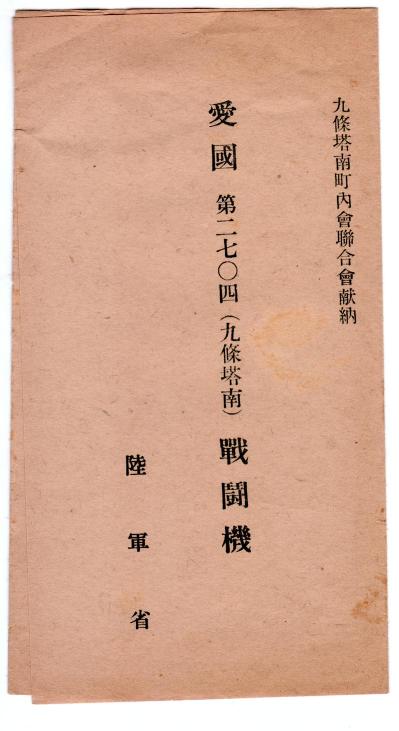 九條塔南町內會聯合會献納
愛國第二七〇四(九條塔南)戰鬪機
陸軍省